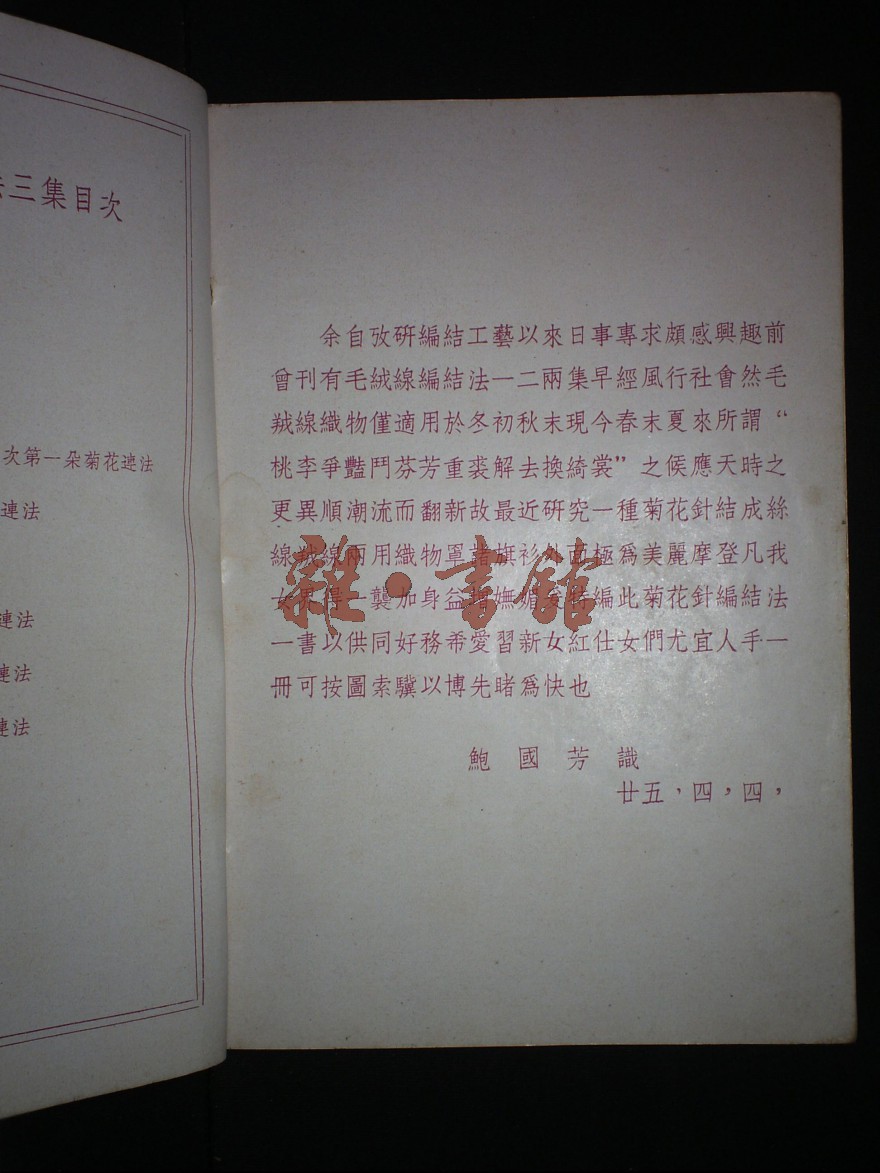 三集目次
次第一朵菊花連法
連法
連法
連法
連法
余自攷研編結工藝以來日事專求頗感興趣前
曾刊有毛絨線編結法一二兩集早經風行社會然毛
羢線織物僅適用於冬初秋末現今春末夏來所謂“
桃李爭豔鬥芬芳重裘解去換綺裳”之候應天時之
更異順潮流而翻新故最近研究一種菊花針結成絲
線羢線兩用織物罩諸旗衫外面極爲美麗摩登凡我
女界得一襲加身益增嫵媚爰特編此菊花針編結法
一書以供同好務希愛習新女紅仕女們尤宜人手一
冊可按圖索驥以博先睹爲快也
鮑國芳識
廿五、四，四，
雜·書館